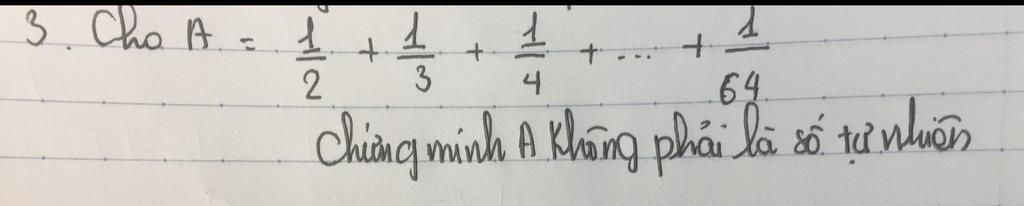 3. Cho A = 1/2 + 1/3 + 1/4 + ... + 1/64
Chứng minh A không phải là số tự nhiên